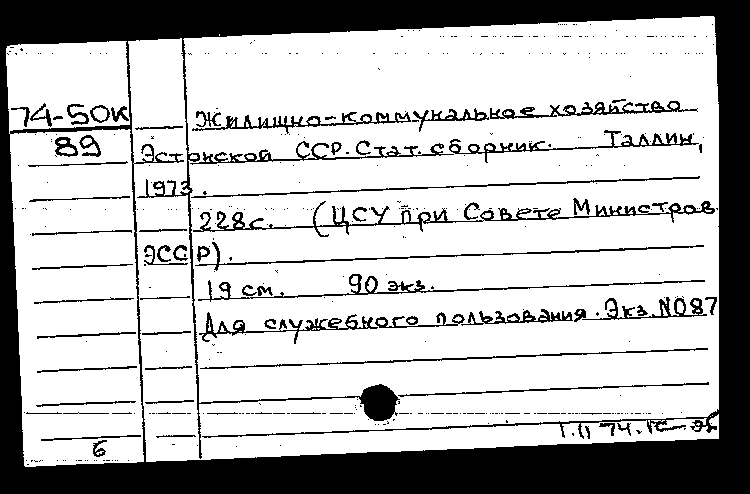 74-50К Жилищно-коммунальное хозяйство
89 Эстонской ССР. Стат. сборник. Таллин,
1973.
228с. (ЦСУ при Совете Министров
ЭССР).
19 см. 90 экз.
Для служебного пользования. Экз. №087
6